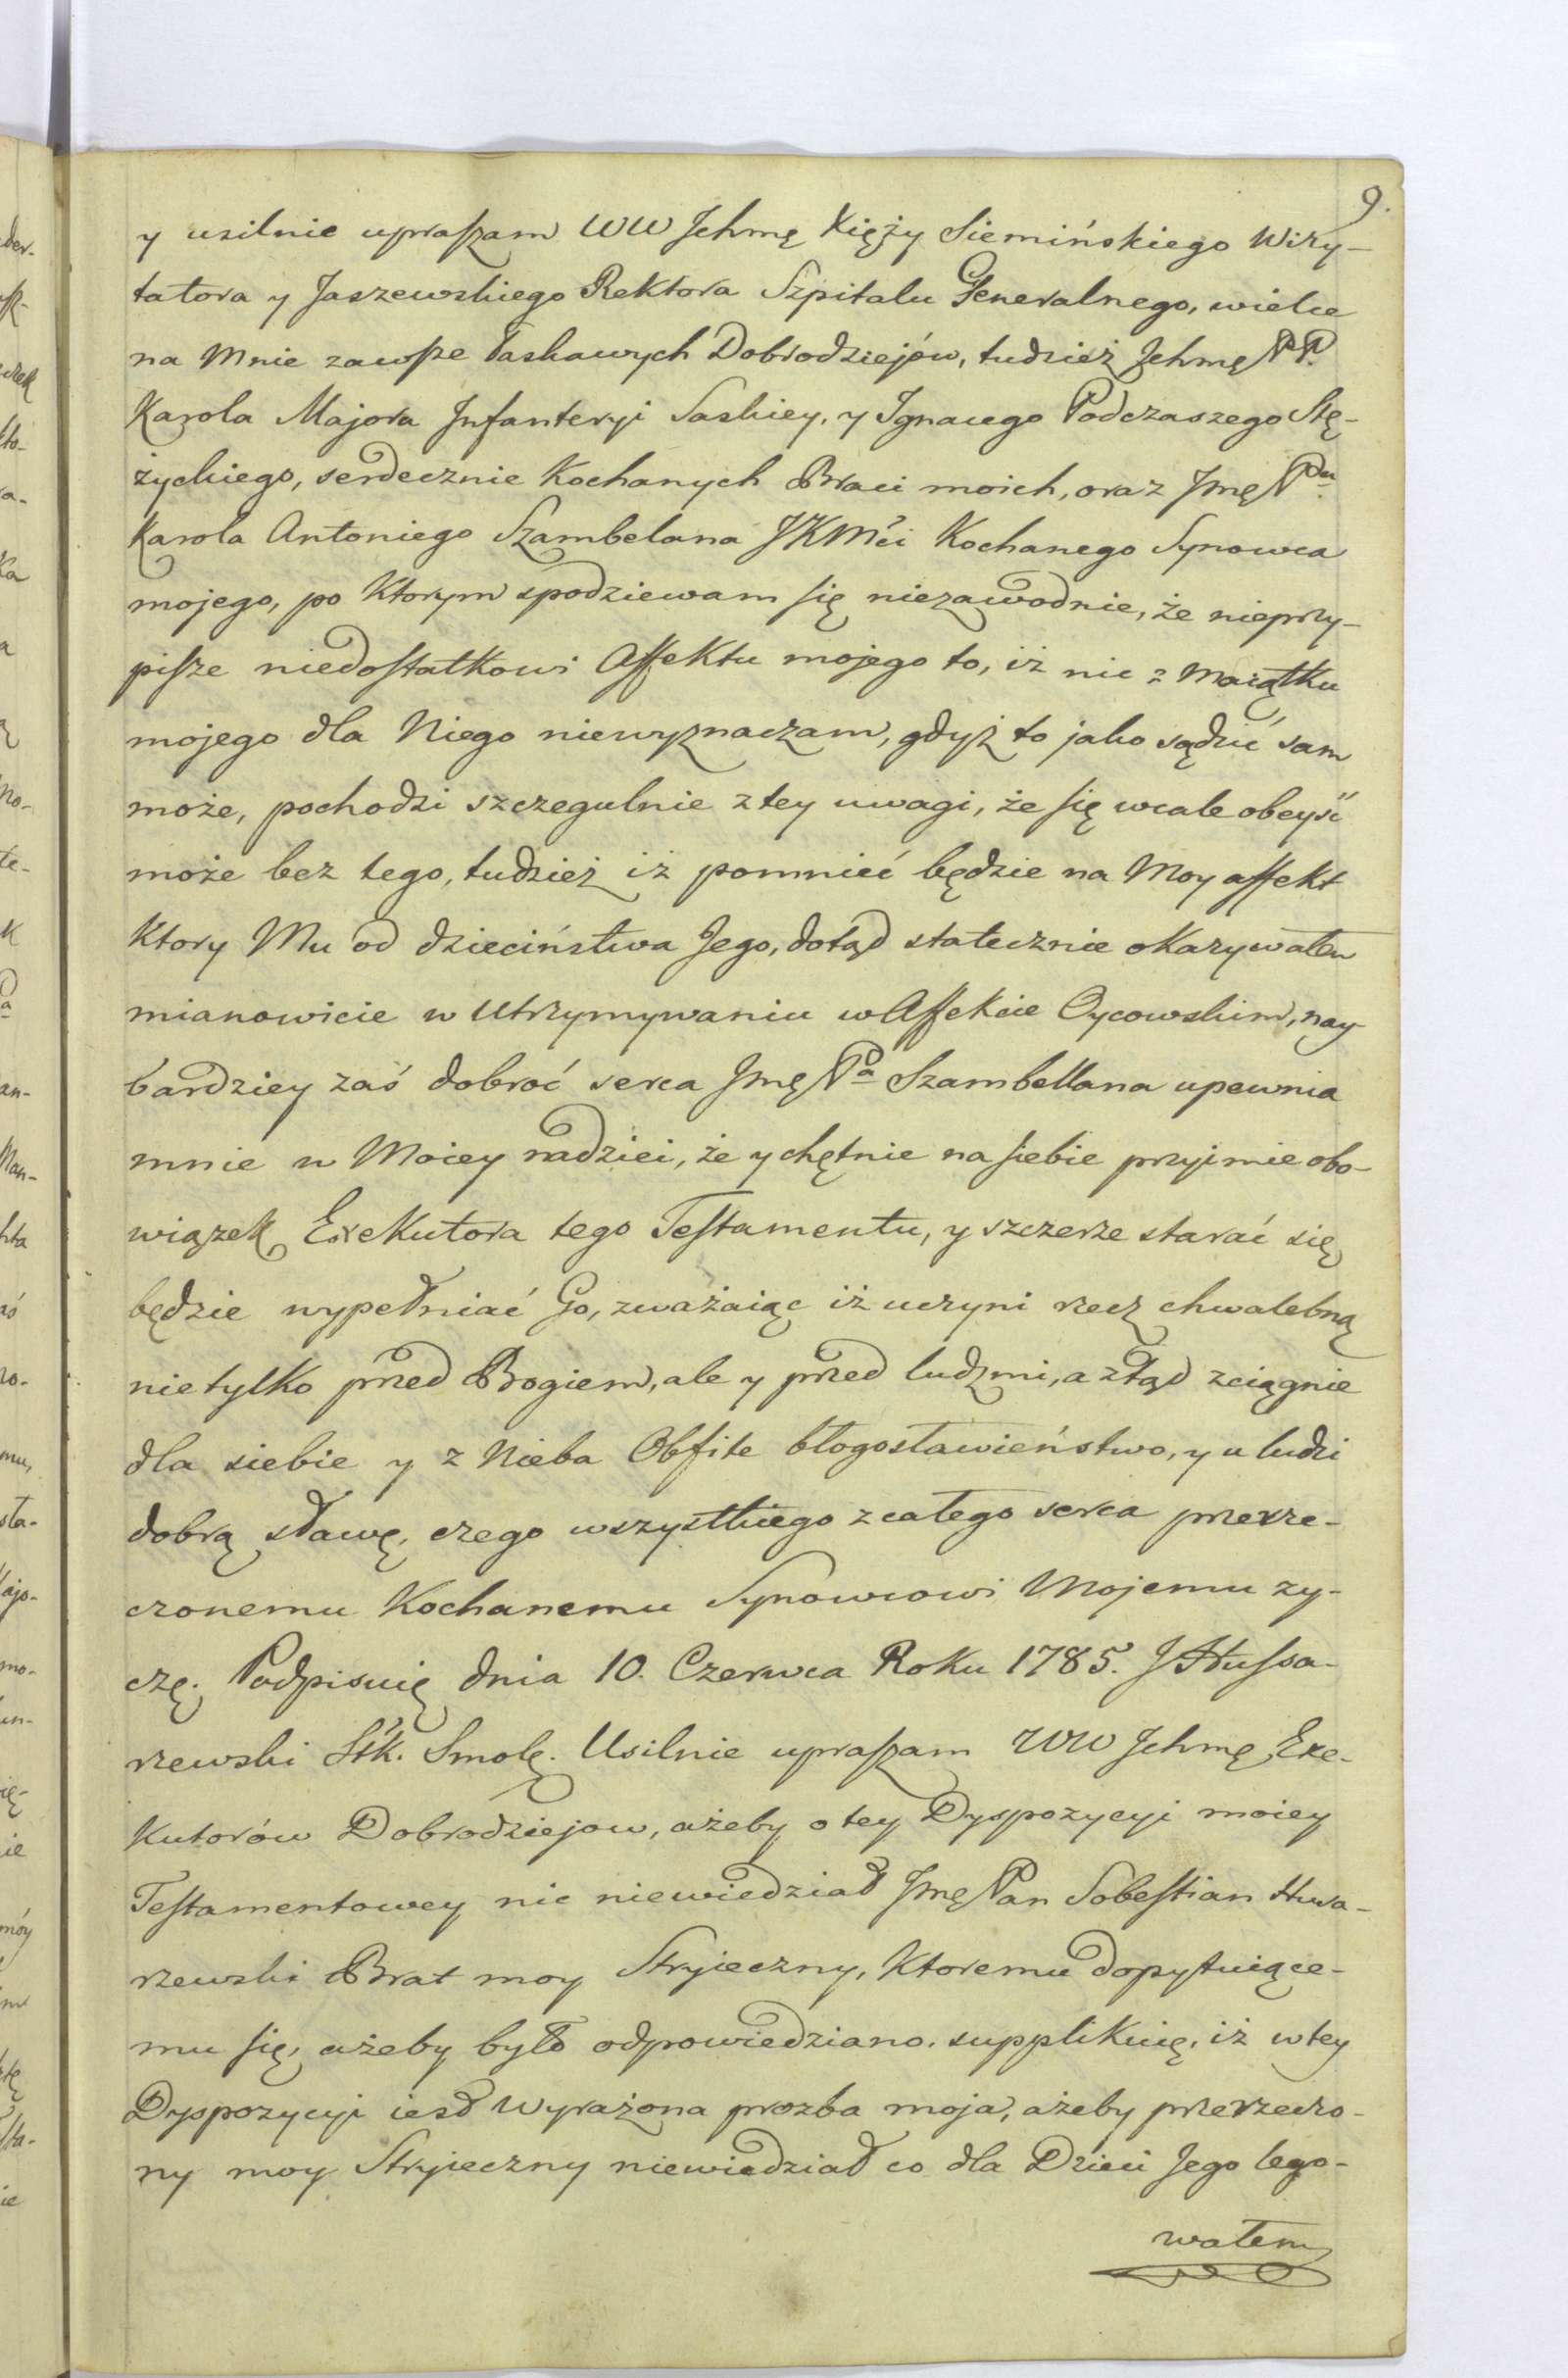 9.
y usilnie upraszam WW Jchmę Xięży Siemińskiego Wizy-
tatora y Jaszewskiego Rektora Szpitalu Generalnego, wielce
na Mnie zawsze łaskawych Dobrodziejów, tudzież Jchmę PP.
Karola Majora Infanteryi Saskiey, y Ignacego Podczaszego Stę-
życkiego, serdecznie Kochanych Braci moich, oraz Jmę Pna
Karola Antoniego Szambelana JKMći Kochanego Synowca
mojego, po Ktorym spodziewam się niezawodnie, że nieprzy-
pisze niedostatkowi Affektu mojego to, iż nic z Maiątku
mojego dla Niego niewyznaczam, gdyż to jako sądzić sam
może, pochodzi szczegulnie z tey uwagi, że się wcale obeyść
może bez tego, tudzież iż pomnieć będzie na Moy affekt
Ktory Mu od dzieciństwa Jego, dotąd statecznie oKazywałem
mianowicie w Utrzymywaniu w Affekcie Oycowskim, nay-
bardziey zaś dobroć serca Jmę Pa Szambellana upewnia
mnie w Moiey nadziei, że y chętnie na siebie przyjmie obo-
wiązek Exekutora tego Testamentu, y szczerze starać się
będzie wypełniać Go, zważaiąc iż uczyni rzecz chwalebną
nietylko przed Bogiem, ale y przed ludzmi, a ztąd zciągnie
dla siebie y z Nieba Obfite błogosławieństwo, y u ludzi
dobrą sławę, czego wszystkiego z całego serca przerze-
czonemu Kochanemu Synowcowi Mojemu zy-
czę. Podpisuię dnia 10. Czerwca Roku 1785. J Hussa-
rzewski Stk. Smolę. Usilnie upraszam WW Jchmę Exe-
Kutorów Dobrodziejow, ażeby o tey Dyspozycyi moiey
Testamentowey nic niewiedział Jmę Pan Sobestian Husa-
rzewski Brat moy Stryieczny, Ktoremu dopytuiące-
mu się, ażeby było odpowiedziano. suppliKuię, iż w tey
Dyspozycyi iest Wyrażona prozba moja, ażeby przerzeczo-
ny moy Stryieczny niewiedział co dla Dzieci Jego lego-
wałem